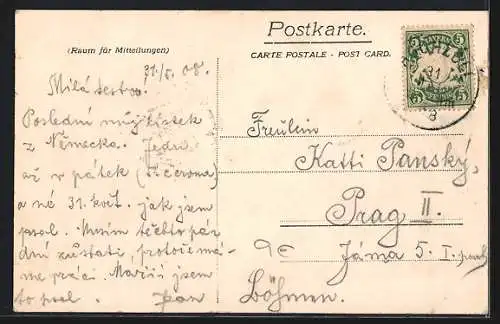 Postkarte.
(Raum für Mitteilungen)
CARTE POSTALE - POST CARD.
31/5. 08.
Milá sestro!
Poslední můj lístek
z Německa. Jedu
až v pátek
a né 31. květ. jak jsem
psal. Musím těchto pár
dní zůstati, protože má-
me práci. Mařii jsem
to psal. Jean
Fräulein
Katti Panský,
Prag II.
Jáma 5. I.
Böhmen.
5 5
31
8